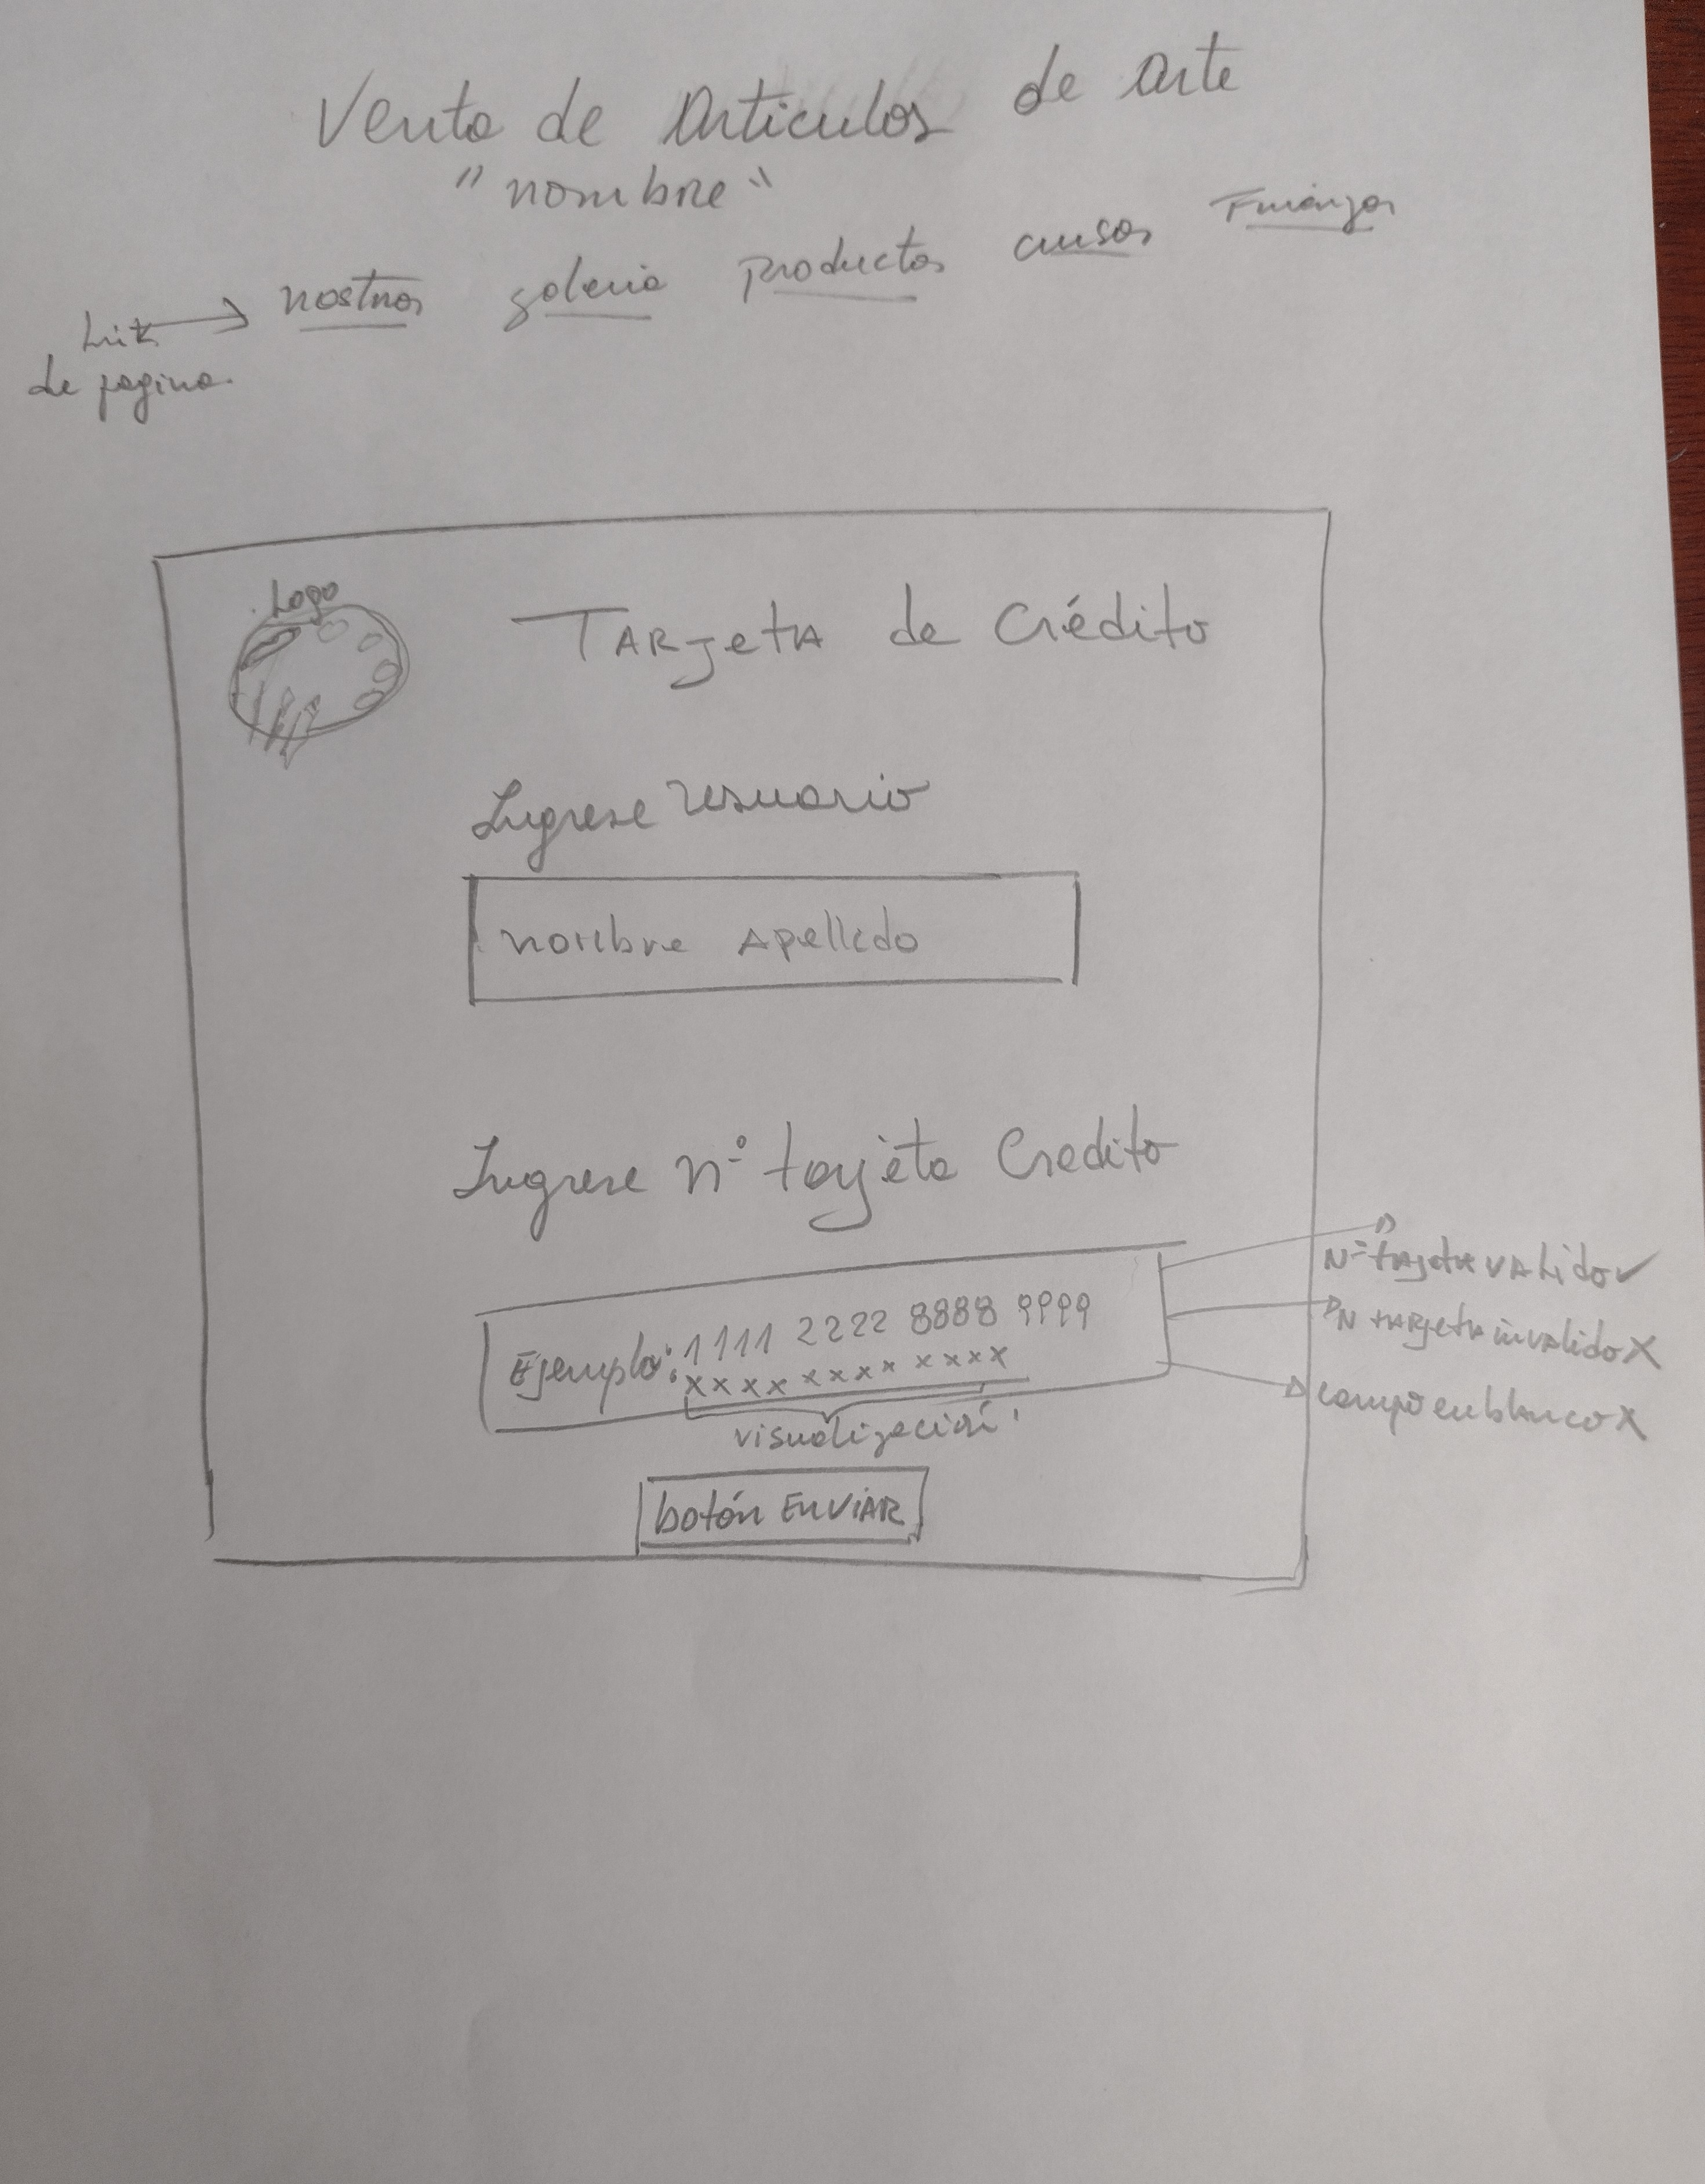 Venta de Articulos de arte
"nombre"
Link de pagina. nostros galeria productos cursos Finanzas
Logo
TARJetA de Crédito
Ingrese usuario
nombre Apellido
Ingrese n° tarjeta Credito
Ejemplo: 1111 2222 8888 9999
xxxx xxxx xxxx
visualización
botón ENVIAR
N= tarjeta valido ✓
N tarjeta invalido X
campo en blanco X